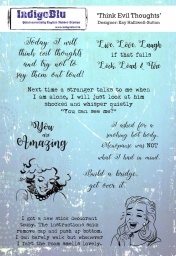 IndigoBlu
'Think Evil Thoughts'
Designer: Kay Halliwell-Sutton
Today I will
think evil thoughts
and try not to
say them out loud!
Live, Love, Laugh
if that fails
Lock, Load & Fire
Next time a stranger talks to me when
I am alone, I will just look at him
shocked and whisper quietly
"You can see me?"
You
are
Amazing
I asked for a
smoking hot body.
Menopause was NOT
what I had in mind.
Build a bridge,
get over it.
I got a new stick deodorant
today. The instructions said:
remove cap and push up bottom.
I can barely walk but whenever
I fart the room smells lovely.